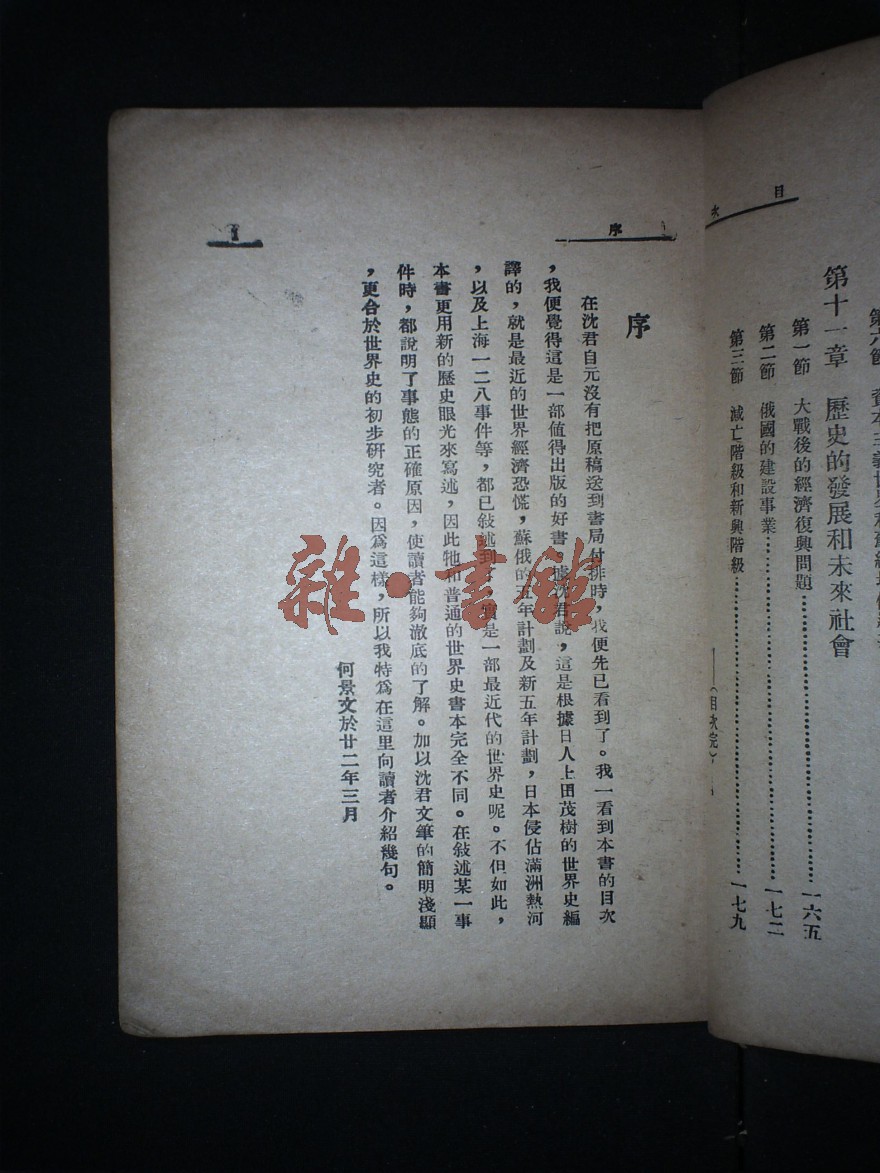 目次
第十一章 歷史的發展和未來社會
第一節 大戰後的經濟復興問題 一六五
第二節 俄國的建設事業 一七二
第三節 滅亡階級和新興階級 一七九
(目次完)
序
1
序
在沈君自元沒有把原稿送到書局付排時,我便先已看到了。我一看到本書的目次
,我便覺得這是一部值得出版的好書。據沈君說,這是根據日人上田茂樹的世界史編
譯的,就是最近的世界經濟恐慌,蘇俄的五年計劃及新五年計劃,日本侵佔滿洲熱河
,以及上海一二八事件等,都已敍述到了,實是一部最近代的世界史呢。不但如此,
本書更用新的歷史眼光來寫述,因此牠和普通的世界史書本完全不同。在敍述某一事
件時,都說明了事態的正確原因,使讀者能夠澈底的了解。加以沈君文筆的簡明淺顯
,更合於世界史的初步研究者。因爲這樣,所以我特爲在這里向讀者介紹幾句。
何景文於廿二年三月
雜·書館